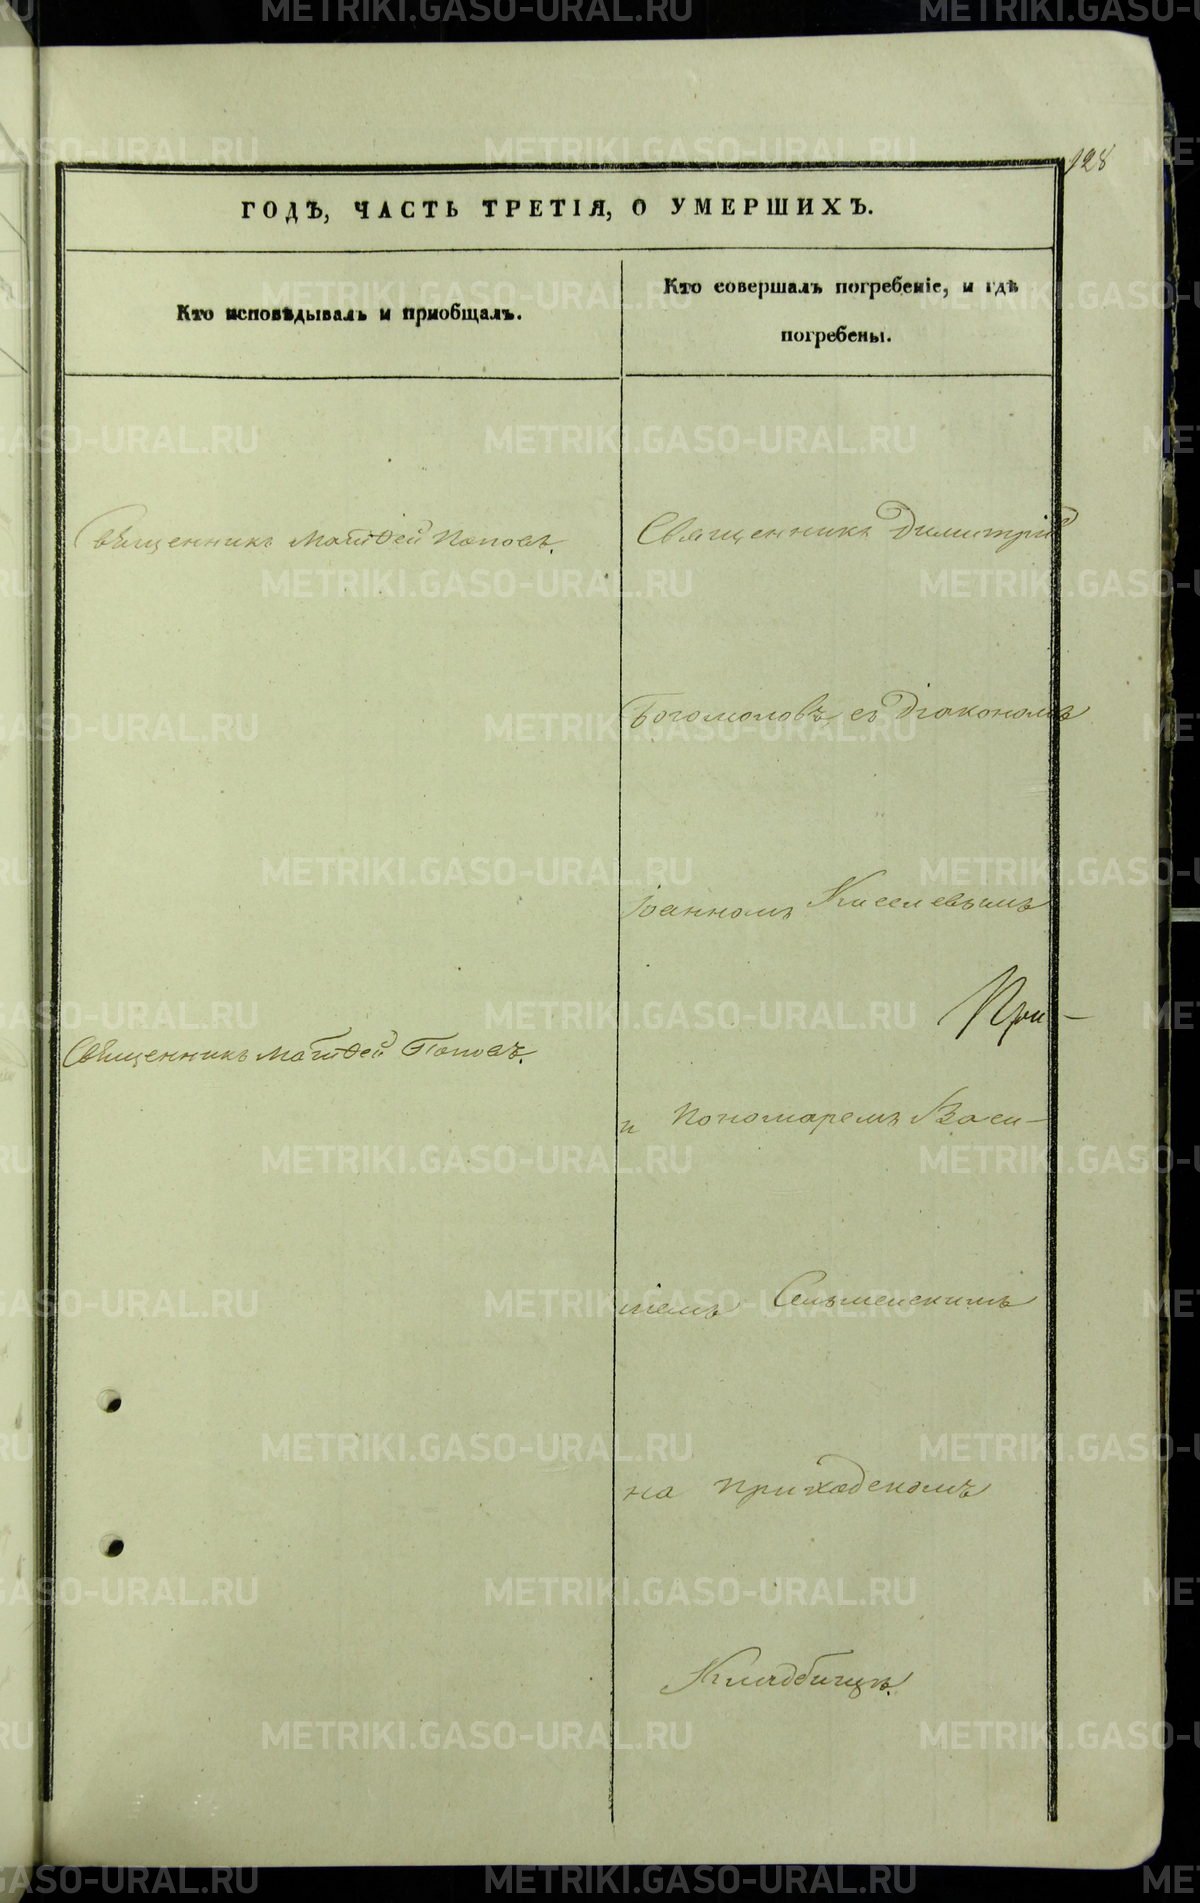 128
ГОДЪ, ЧАСТЬ ТРЕТІЯ, О УМЕРШИХЪ.
Кто исповѣдывалъ и пріобщалъ.
Кто совершалъ погребеніе, и гдѣ
погребены.
Священникъ Матѳей Поповъ.
Священникъ Матѳей Поповъ.
Священникъ Димитрій
Богомоловъ съ Діакономъ
Іоанномъ Киселевымъ
При-
и Пономаремъ Васи-
ліемъ Сельменскимъ
на приходскомъ
Кладбищѣ.
METRIKI.GASO-URAL.RU